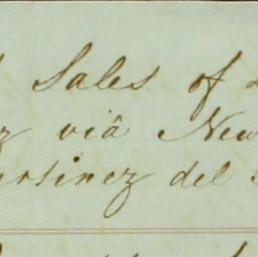 Sales of
viâ New
artinez del